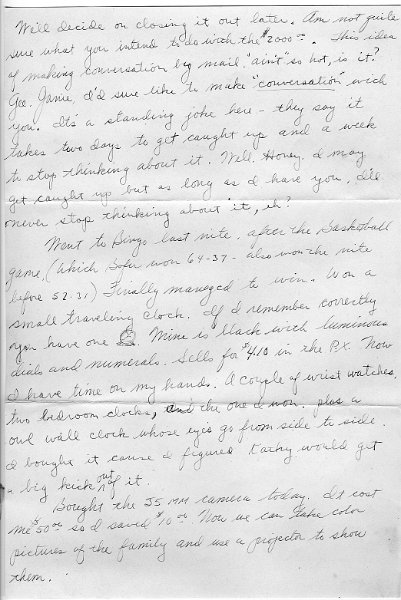 Will decide on closing it out later. Am not quite
sure what you intend to do with the $2000.00. This idea
of making conversation by mail "ain't" so hot, is it?
Gee, Janie, I'd sure like to make "conversation" with
you. It's a standing joke here - they say it
takes two days to get caught up and a week
to stop thinking about it. Well, Honey, I may
get caught up but as long as I have you, I'll
never stop thinking about it, eh?
Went to Bingo last nite, after the Basketball
game, (which won 64-37 - also won the nite
before 52-31) Finally managed to win. Won a
small traveling clock. If I remember correctly
you have one. Mine is black with luminous
dials and numerals. Sells for $4.10 in the P.X. Now
I have time on my hands. A couple of wrist watches,
two bedroom clocks, and the one I won, plus a
owl wall clock whose eyes go from side to side.
I bought it cause I figured Kathy would get
a big kick out of it.
Bought the 35 MM camera today. It cost
me $50.00 so I saved $10.00. Now we can take color
pictures of the family and use a projector to show
them.